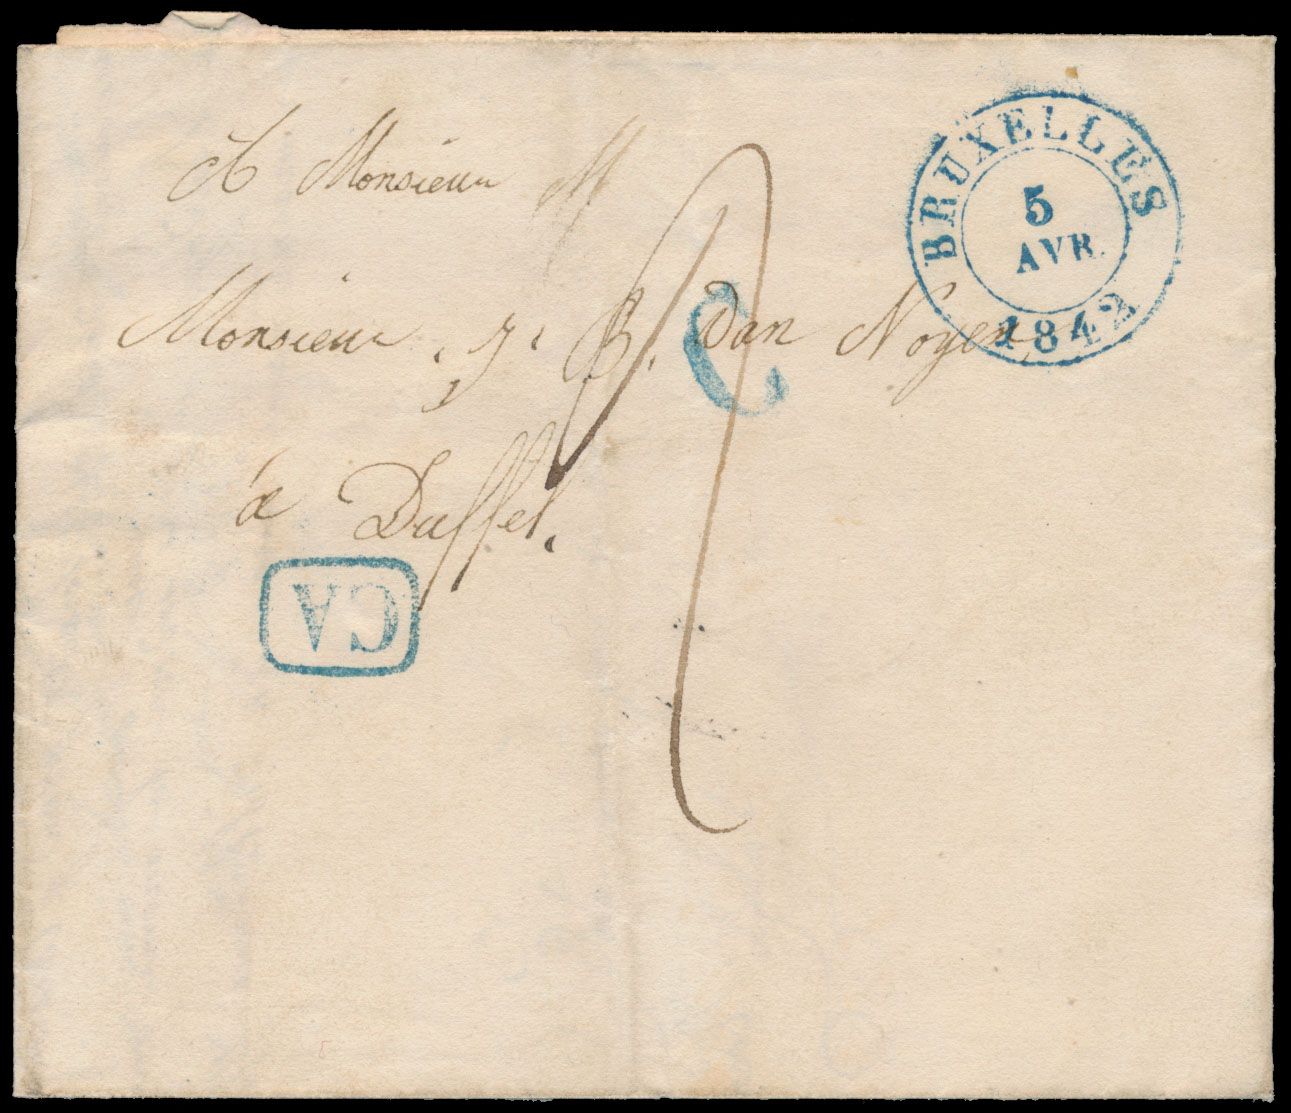 BRUXELLES
5
AVR.
1842
A Monsieur M
Monsieur J. B. Van Noyen
C
à Duffel.
CA